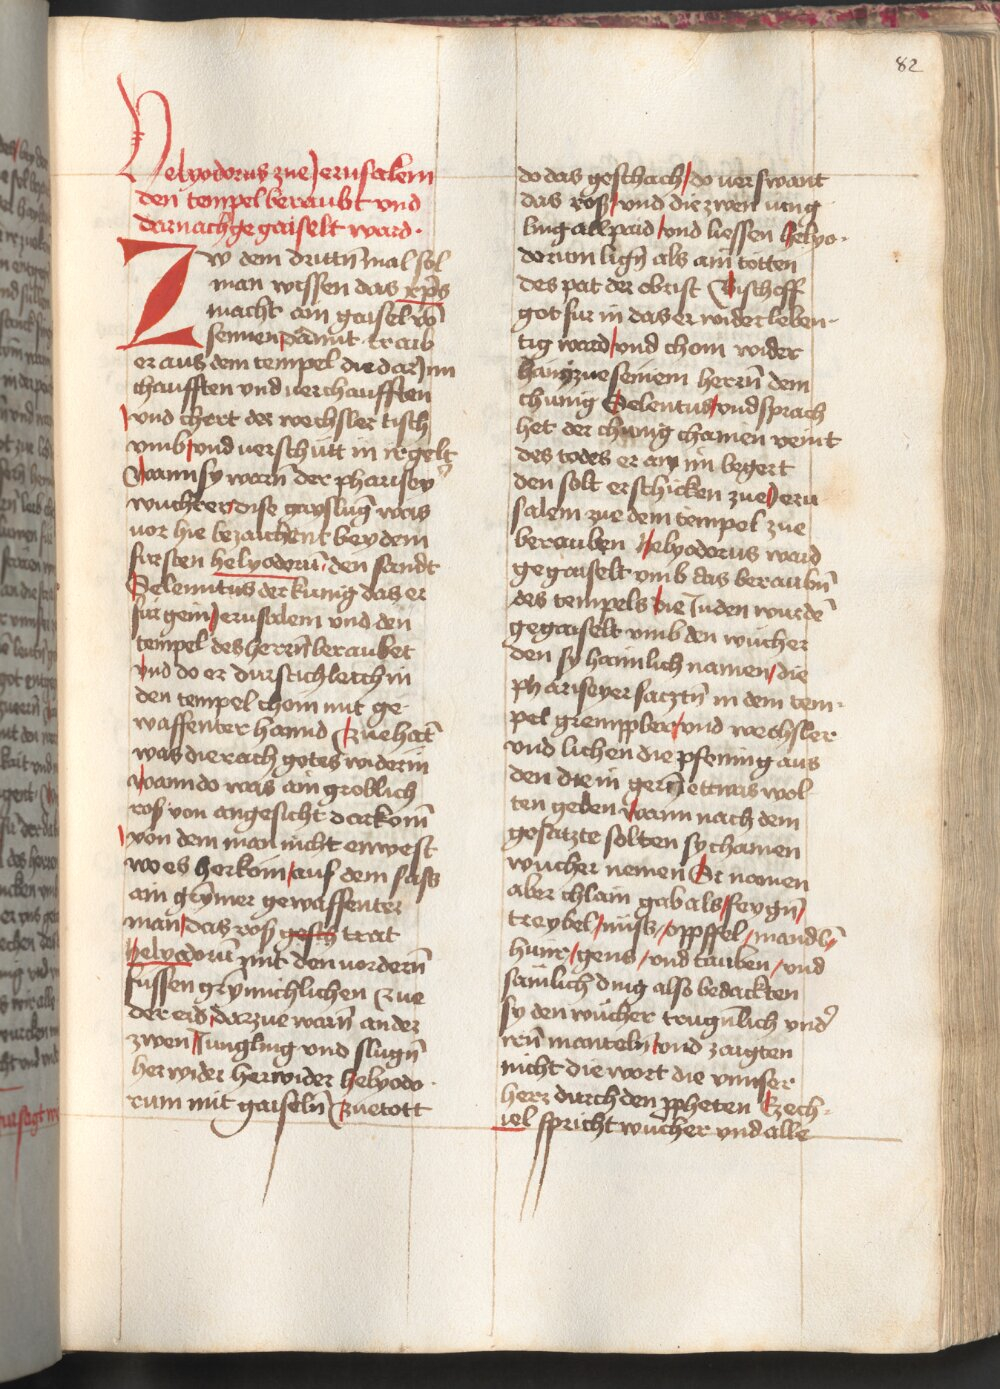 82
Helyodorus zue Jerusalem
den tempel beraubt vnd
darnach gegaiselt ward.
Zw dem drittñ mal sol
man wissen das xp̄s
macht ain gaisel võ
sennen Damit traib
er aus dem tempel die dar Inn
chaufften vnd uerchaufften
vnd chert der wechsler tisch
vmb vnd uerschütt in ir gelt
Wann sy warñ der pharisey
wuchrer dise gayslũg was
uor hie bezaichent bey dem
fürsten helyodorũ den sandt
Seleuntus der künig das er
für gein Jerusalem vnd den
tempel des herrñ beraubet
vnd do er durstichleich in
den tempel chom mit ge-
waffenter hannd zue hãt
was die rach gotes wider in
Wann do was ain groblich
ros von angesicht darkom̃
von dem man nicht enwest
wo es herkom auf dem sass
ain grymer gewaffenter
man das ros gesch trat
helyodorũ mit den uorderñ
füssen grymichlichen zue
der erd dar zue warñ ander
zwen Jungling vnd slugñ
her wider her wider helyodo-
rum mit gaiselñ zue tott
do das geschach do uerswant
das ros vnd die zwen iung
ling all paid vnd liessen helyo-
dorum lign̄ als ain totten
des pat der obrist Bischoff
got für in das er wider leben-
tig ward vnd chom wider
haym zue seinem herrñ dem
chunig Seleutus vnd sprach
het der chunig chainen veint
des todes er an im begert
den solt er schicken zue Jeru
salem zue dem tempel zue
berauben Helyodorus ward
gegaiselt vmb das beraubñ
des tempels Die Juden wurdẽ
gegaiselt vmb den wucher
den sy haimlich namen die
phariseyer saczt̄n in dem tem-
pel grempper vnd wechsler
vnd lichen die pfening aus
den die in gern̄ ettwas wol
ten geben Wann nach dem
gesatzte solten sy chainen
wucher nemen Sy namen
aber chlain gab als feygñ
treybel nüss öppffel mandl̄n
hüner gens vnd tauben vnd
sämlich ding also bedackten
sy den wucher trugñlich vnd̾
irñ mantelñ vnd zaigten
nicht die wort die vnnser
herz durch den ppheten Ezech-
iel spricht wucher vnd alle